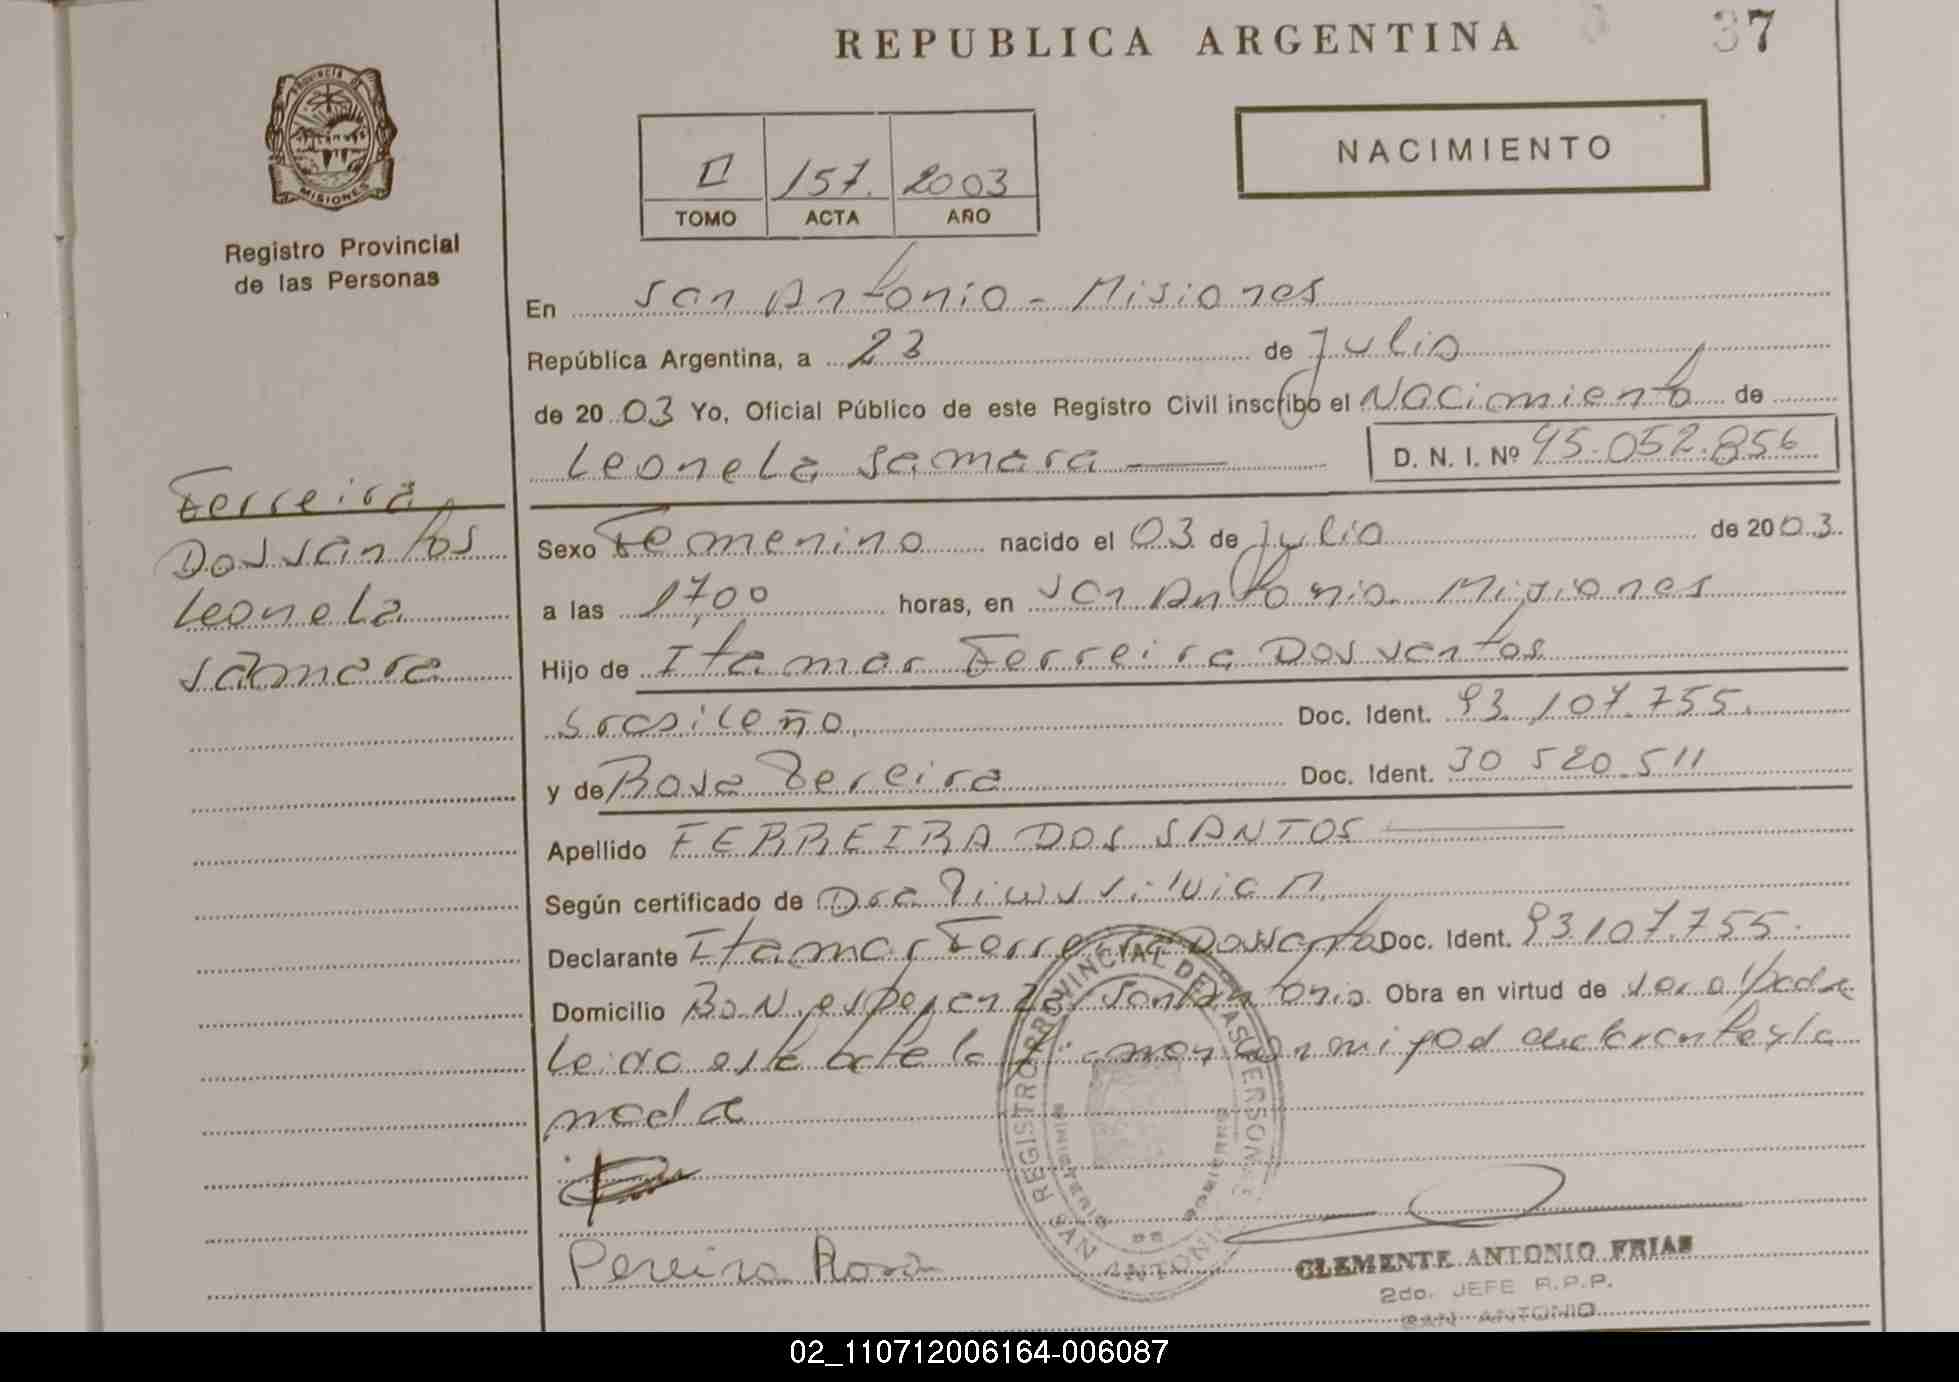 REPUBLICA ARGENTINA 37
PROVINCIA DE MISIONES
Registro Provincial
de las Personas
157. 2003
TOMO ACTA AÑO
NACIMIENTO
En San Antonio - Misiones
República Argentina, a 23 de Julio
de 2003 Yo, Oficial Público de este Registro Civil inscribo el Nacimiento de
Leonela Samara D. N. I. Nº 45.052.856
Ferreira
Dos santos
Leonela
samara
Sexo Femenino nacido el 03 de Julio de 2003.
a las 1700 horas, en San Antonio. Misiones
Hijo de Itamar Ferreira Dos santos
brasileño, Doc. Ident. 93.107.755.
y de Rosa Pereira Doc. Ident. 30 520.511
Apellido FERREIRA DOS SANTOS
Según certificado de Dra
Declarante Itamar Ferreira Dos santos Doc. Ident. 93107.755.
Domicilio San Antonio. Obra en virtud de ser el padre
Leida este acta la conmigo el declarante y la
madre
Pereira Rosa
REGISTRO PROVINCIAL DE LAS PERSONAS
SAN ANTONIO
MISIONES
CLEMENTE ANTONIO FRIAS
2do. JEFE R.P.P.
SAN ANTONIO
02_110712006164-006087